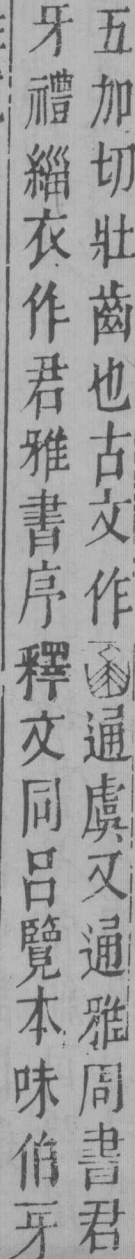 五加切壯齒也古文作通虞又通雅周書君
牙禮緇衣作君雅書序釋文同呂覽本味伯牙